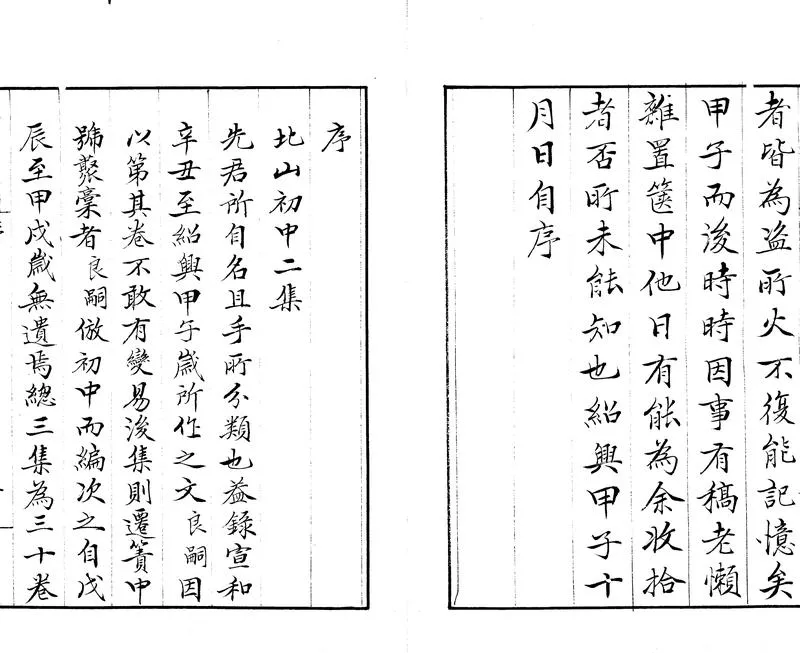 者皆為盗所火不復能記憶矣
甲子而後時時因事有稿老懶
雜置篋中他日有能為余收拾
者否所未能知也紹興甲子十
月日自序
序
北山初中二集
先君所自名且手所分類也益錄宣和
辛丑至紹興甲午歲所作之文良嗣因
以第其卷不敢有變易後集則遷簣中
號聚稾者良嗣倣初中而編次之自戊
辰至甲戌歲無遺焉總三集為三十卷